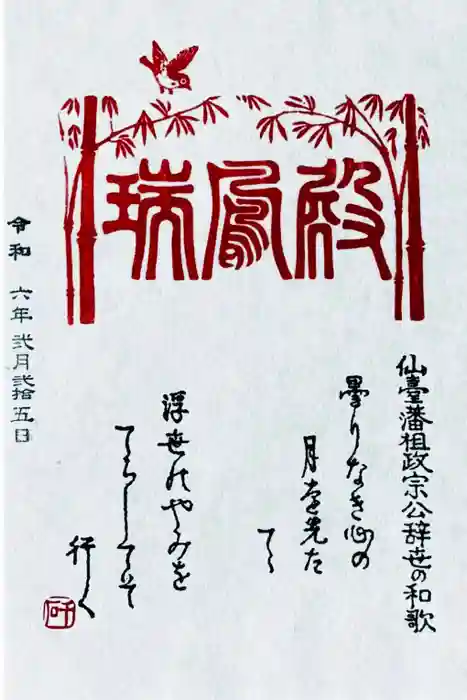 瑞鳳殿
仙臺藩祖政宗公辞世の和歌
曇りなき心の
月を先た
てゝ
浮世のやみを
てらしてそ
行く
令和 六年 弐月 弐拾五日